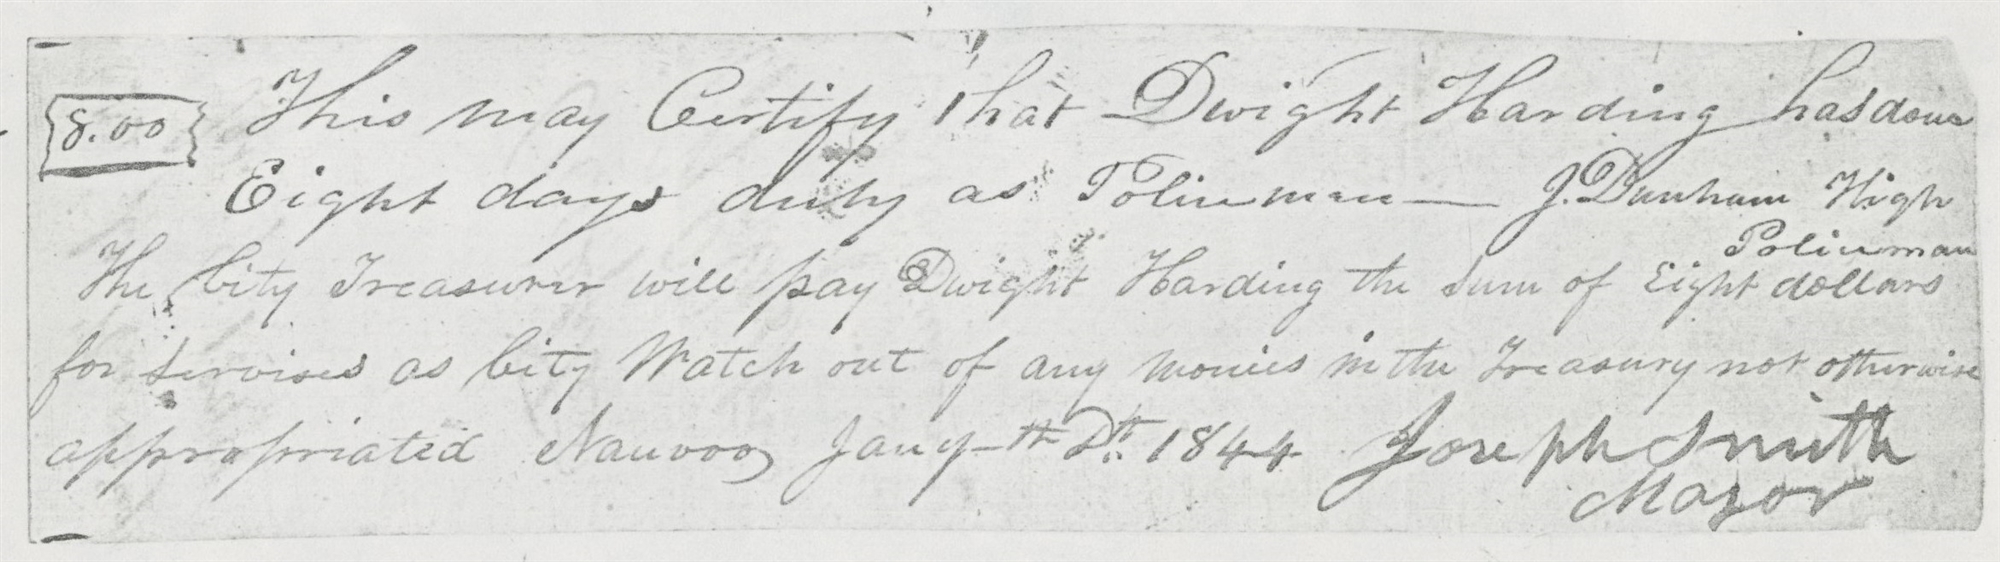 8.00 This may Certify that Dwight Harding has done
Eight days duty as Policeman — J. Dunham High
Policeman
The City Treasurer will pay Dwight Harding the sum of Eight dollars
for servises as City Watch out of any monies in the Treasury not otherwise
appropriated Nauvoo Jany 1844 Joseph Smith
Mayor